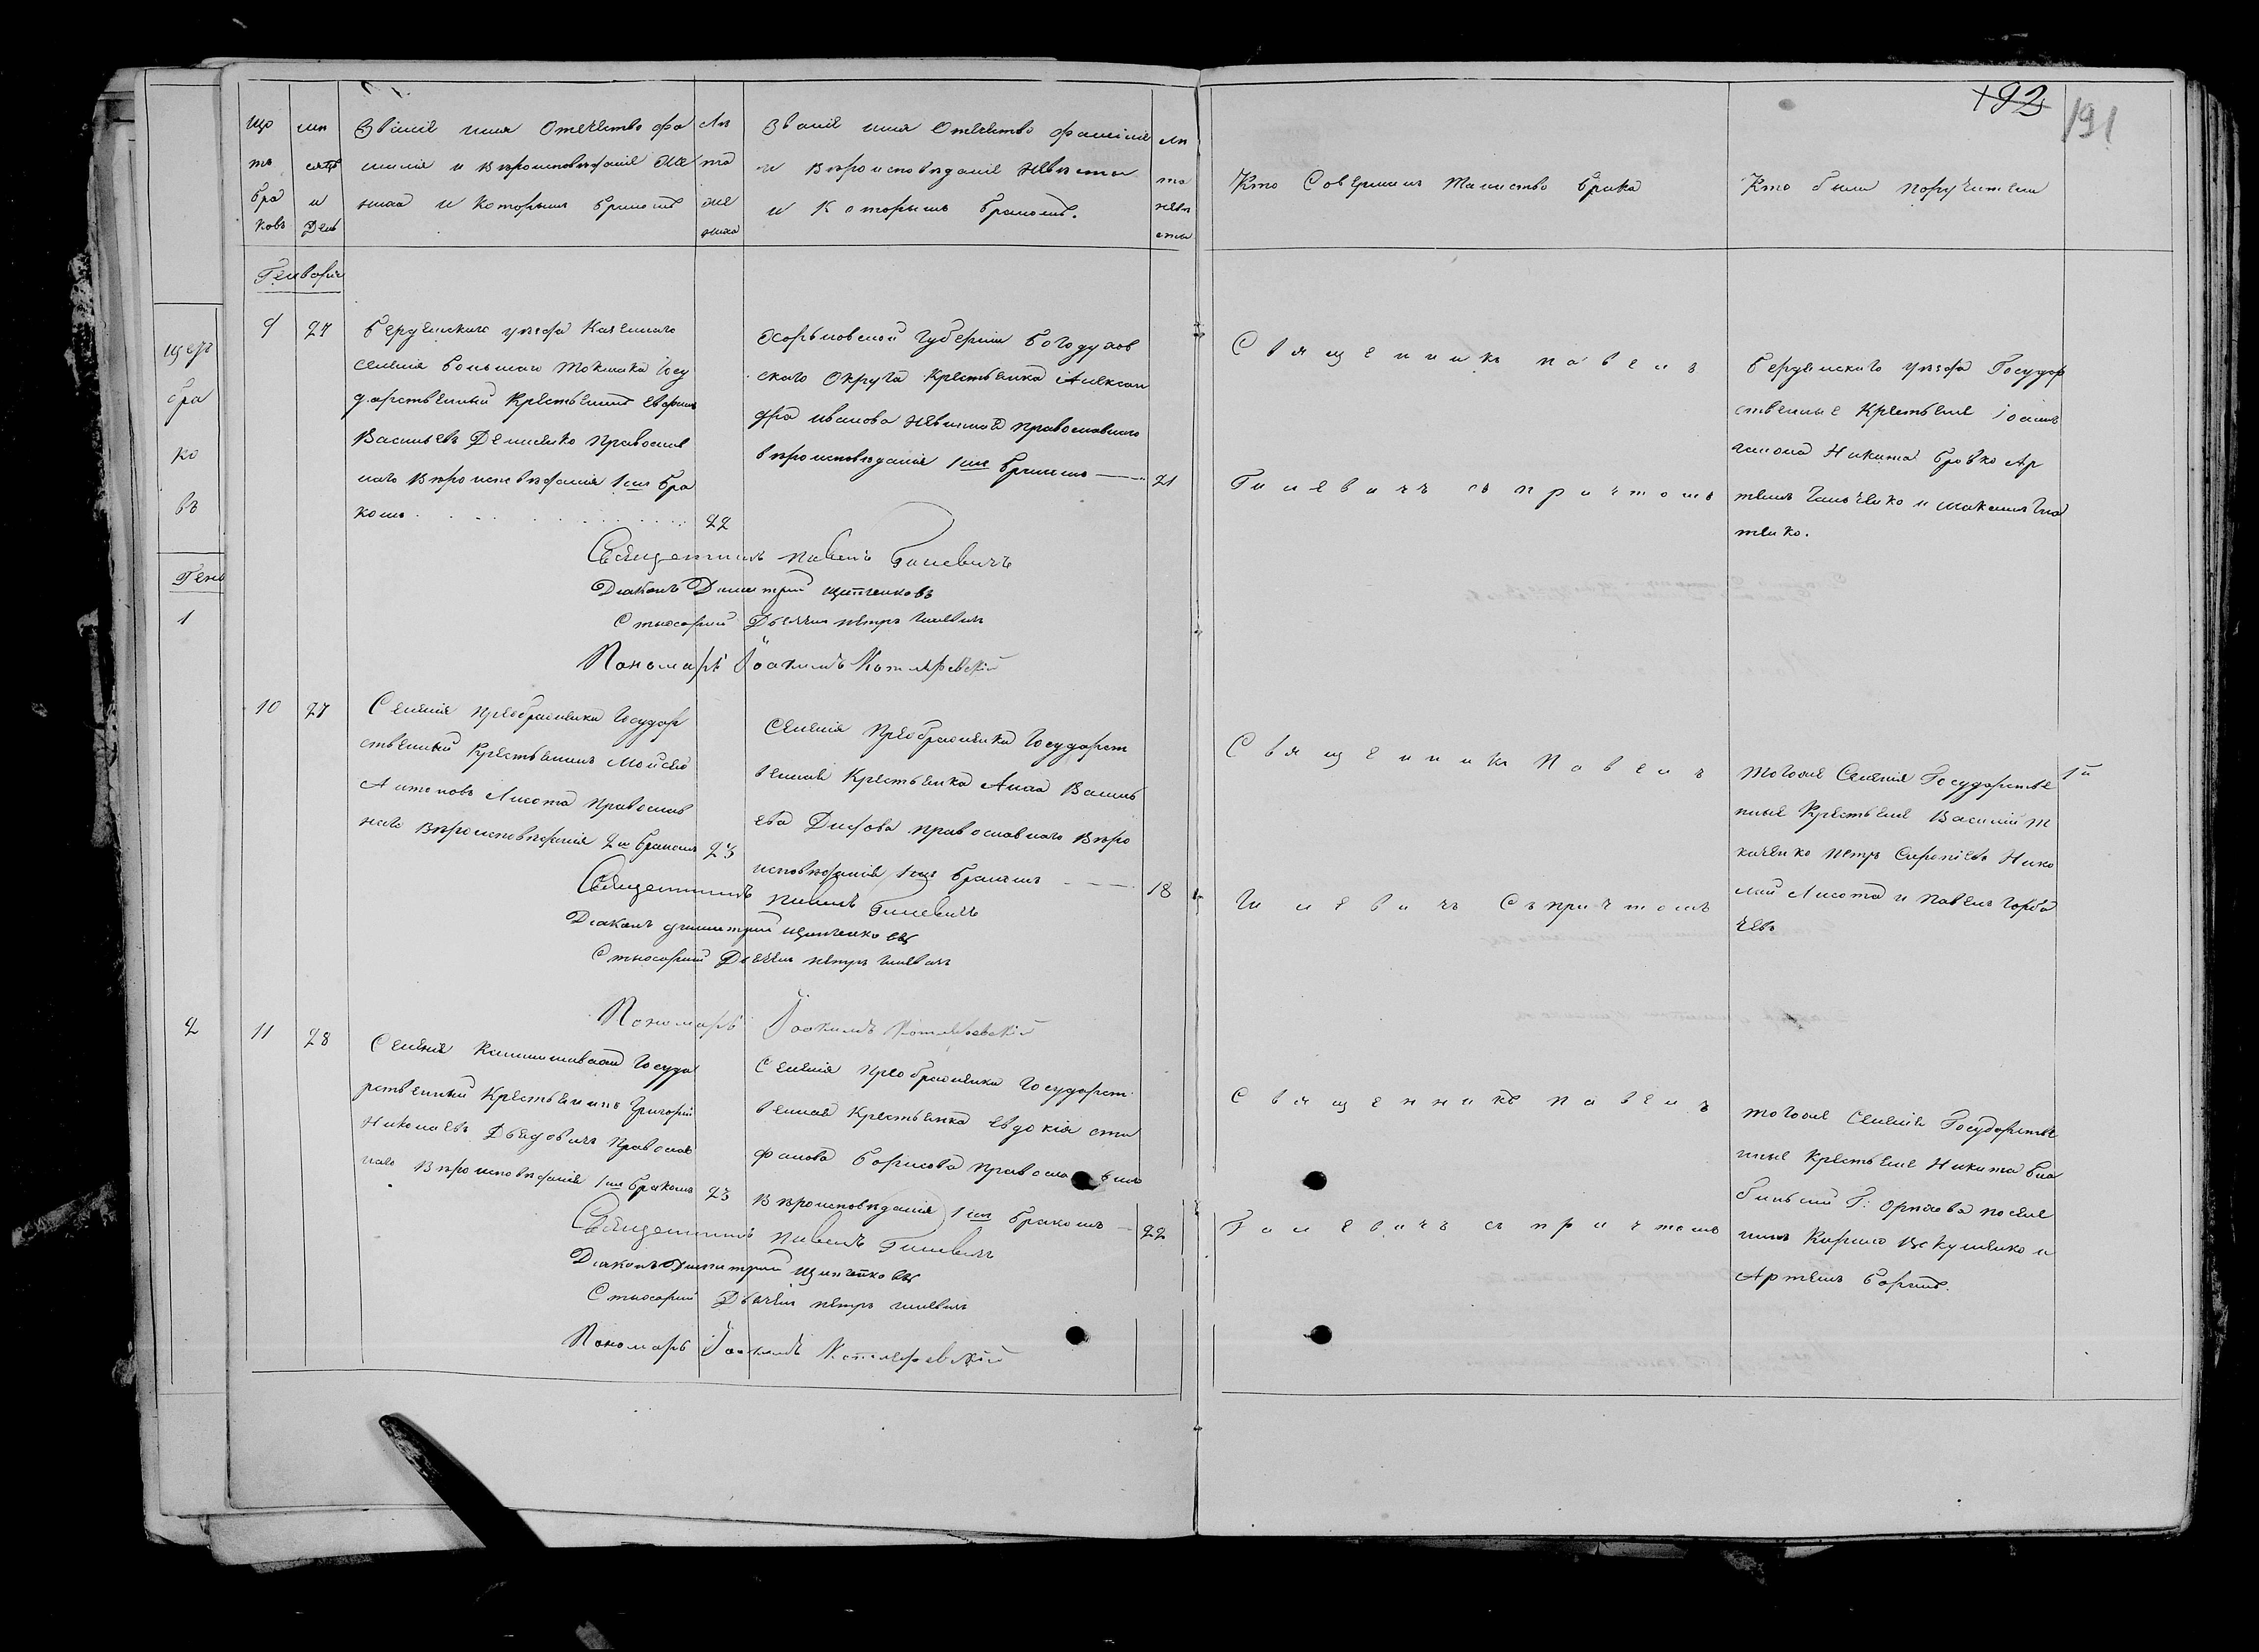 192
191
Що
тъ
бра
ковъ
мѣ
сяцъ
и
День
Званіе имя Отечество фа
милія и Вѣроисповѣданіе Же
ниха и Которымъ бракомъ
Лѣ
та
же
ниха
Званіе имя Отечество фамилія
и Вѣроисповѣданіе невѣсты
и Которымъ бракомъ.
лѣ
та
невѣ
сты
Кто Совершилъ Таинство брака
Кто были поручители
Генваря
9
24
Бердянскаго уѣзда Казеннаго
селенія Большаго Токмака Госу
дарственный Крестьянинъ
Васильевъ Денисенко Православ
наго Вѣроисповѣданія 1мъ бра
комъ
22
Харьковской Губерніи Богодухов
скаго Округа Крестьянка Алексан
дра Иванова православнаго
вѣроисповѣданія 1мъ бракомъ
21
Священникъ Павелъ
Гилевичъ съ причтомъ
Бердянскаго уѣзда Государ
ственные Крестьяне Іоаннъ
Никита Бровко Ар
темъ и Максимъ Гна
тенко.
Священникъ Павелъ Гилевичъ
Діаконъ Димитрій
Дьячекъ Петръ Гилевичъ
Пономарь Іоакимъ Котляревскій
10
27
Селенія Преображенки Государ
ственный Крестьянинъ Моисей
Антоновъ Лисота Православ
наго Вѣроисповѣданія 2мъ бракомъ
23
Селенія Преображенки Государст
венная Крестьянка Анна Василь
ева православнаго Вѣро
исповѣданія 1мъ бракомъ
18
Священникъ Павелъ
Гилевичъ съ причтомъ
Тогоже Селенія Государстве
нные Крестьяне Василій Т
каченко Петръ Нико
лай Лисота и Павелъ Горба
чевъ
Священникъ Павелъ Гилевичъ
Діаконъ Димитрій
Дьячекъ Петръ Гилевичъ
Пономарь Іоакимъ Котляревскій
11
28
Селенія Камышеватой Госуда
рственный Крестьянинъ Григорій
Николаевъ Православ
наго Вѣроисповѣданія 1мъ бракомъ
23
Селенія Преображенки Государст
венная Крестьянка Евдокія Сте
фанова Борисова Православнаго
Вѣроисповѣданія 1мъ бракомъ
22
Священникъ Павелъ
Гилевичъ съ причтомъ
Тогоже Селенія Государстве
нные Крестьяне Никита
Г: Орѣхова поселя
нинъ Кирило и
Артемъ
Священникъ Павелъ Гилевичъ
Діаконъ Димитрій
Дьячекъ Петръ Гилевичъ
Пономарь Іоакимъ Котляревскій
бра
ко
въ
Генв
1
2